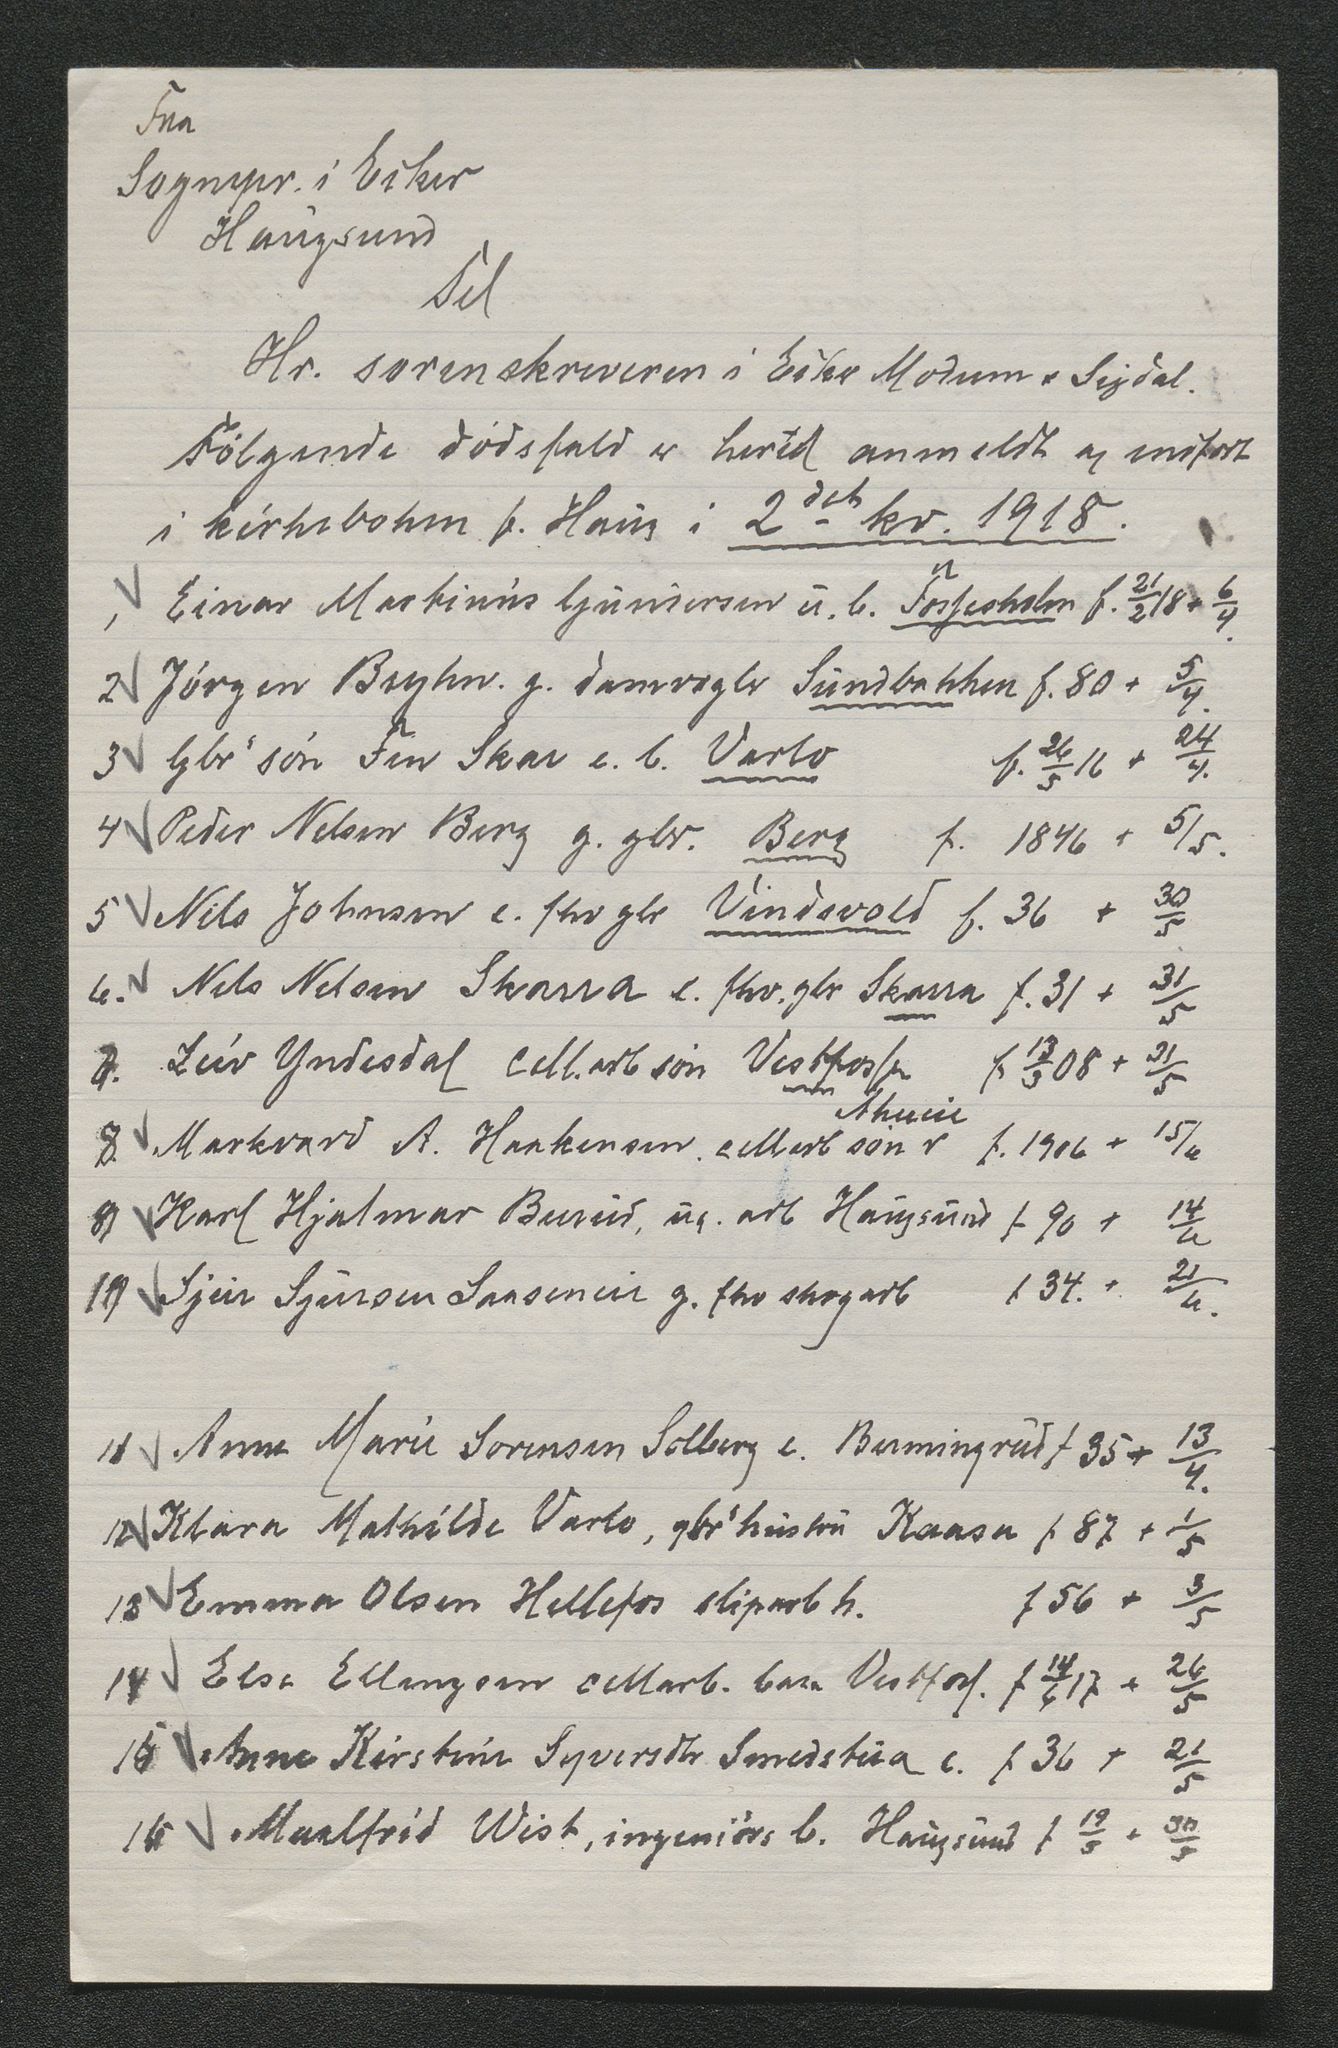 Fra
Sognepr. i Eiker
Haugsund
Til
Hr. sorenskriveren i Eiker Modum & Sigdal.
Følgende dödsfald er hertil anmeldt og indfört
i kirkeboken f. Haug i 2det kv. 1918.
1, Einar Martinius Gundersen u. b. Fossesholm f. 21/2 18 + 6/4.
2 Jörgen Bruhn. g. damvogter Sundbakken f. 80 + 5/4.
3 Gbr's sön Finn Skar e. b. Varlo f. 26/5 16 + 24/4.
4 Peder Nelsen Berg g. gbr. Berg f. 1846 + 5/5.
5 Nils Johnsen e. fhv gbr Vindsvold f. 36 + 30/5
6. Nils Nilsen Skarra e. fhv. gbr Skarra f. 31 + 31/5
7. Leiv Yndesdal cell.arb sön Vestfossen f 13/3 08 + 31/5
8 Markvard A. Haakensen cellarb sön f. 1906 + 15/6
9 Karl Hjalmar Burud, ug. arb Haugsund f 90 + 14/6
10 Sjur Sjursen Saaseneie g. fhv skogarb f 34. + 21/6.
11 Anne Marie Sorensen Solberg e. Bermingrud f 35 + 13/4.
12 Klara Mathilde Varlo, gbr's hustru Kaasa f 87 + 1/5
13 Emma Olsen Hellefos sliparb h. f 56 + 3/5
14 Else Ellingsen cellarb. barn Vestfos. f 14/6 17 + 26/5
15 Anne Kirstine Syversdtr Smedstua e. f 36 + 21/5
16 Maalfrid Wist, ingeniörs b. Haugsund f 19/5 + 30/5